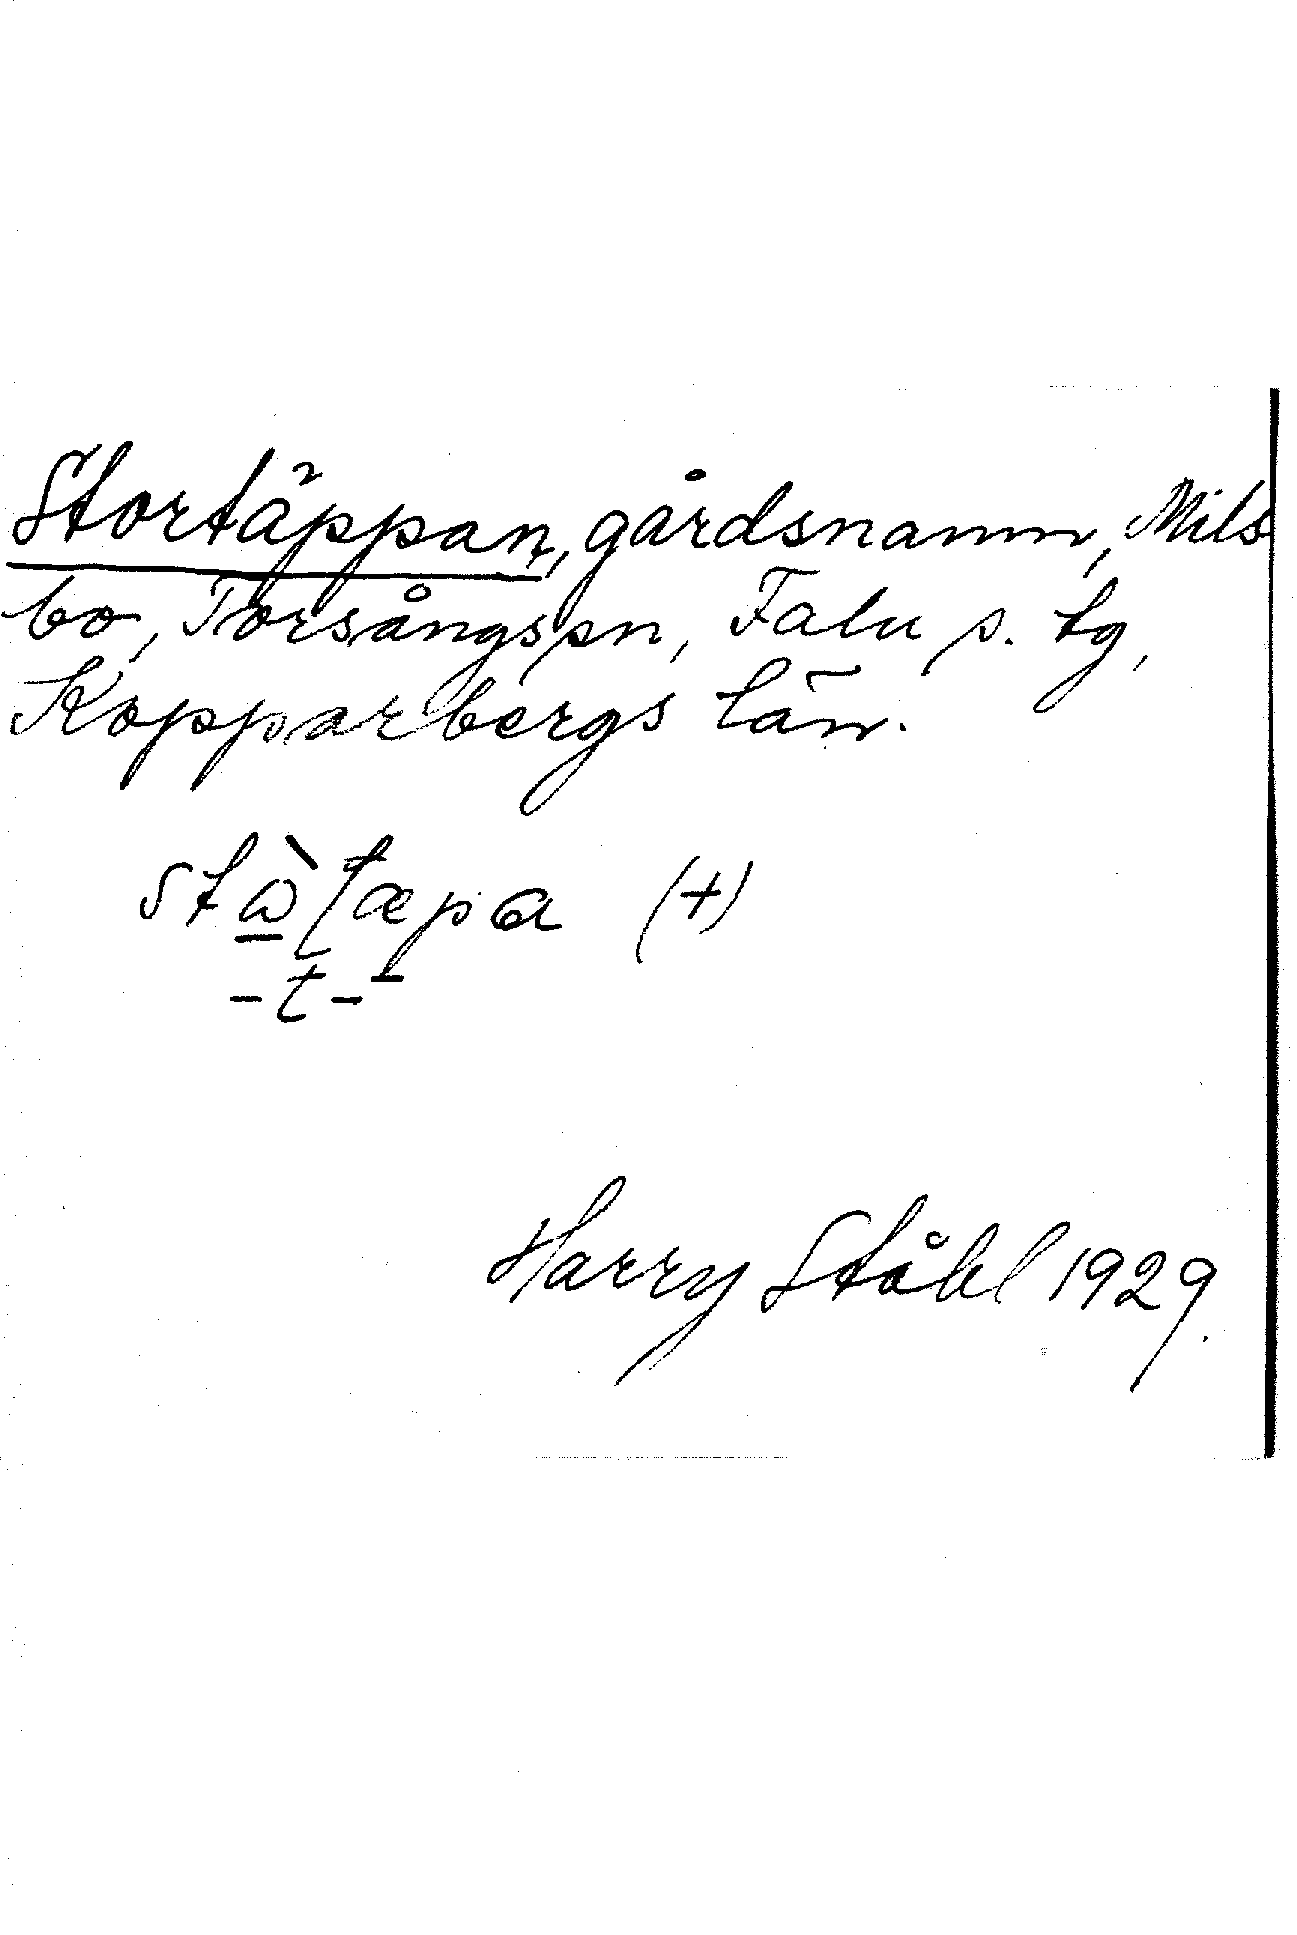 Stortäppan, gårdsnamn, Mils
bo, Torsångs sn, Falu s. tg,
Kopparbergs län.
(+)
-t-
Harry Ståhl 1929.